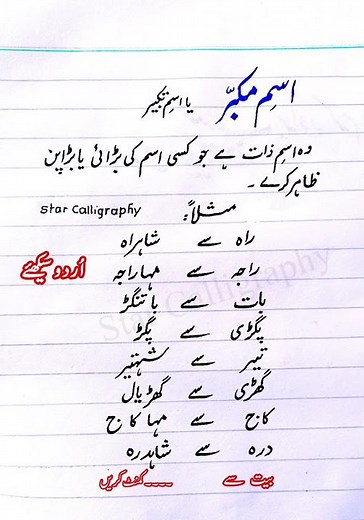 اسمِ مکبّر یا اسمِ تکبیر
وہ اسمِ ذات ہے جو کسی اسم کی بڑائی یا بڑاپن
ظاہر کرے ۔
مثلاً:
Star Calligraphy
راہ سے شاہراہ
راجہ سے مہاراجہ
اُردو سیکھئے
بات سے باتنگڑ
پگڑی سے پگڑ
تیر سے شہتیر
گھڑی سے گھڑیال
کاج سے مہا کاج
درہ سے شاہدرہ
بیت سے ۔۔۔۔ کمنٹ کریں
Star Calligraphy